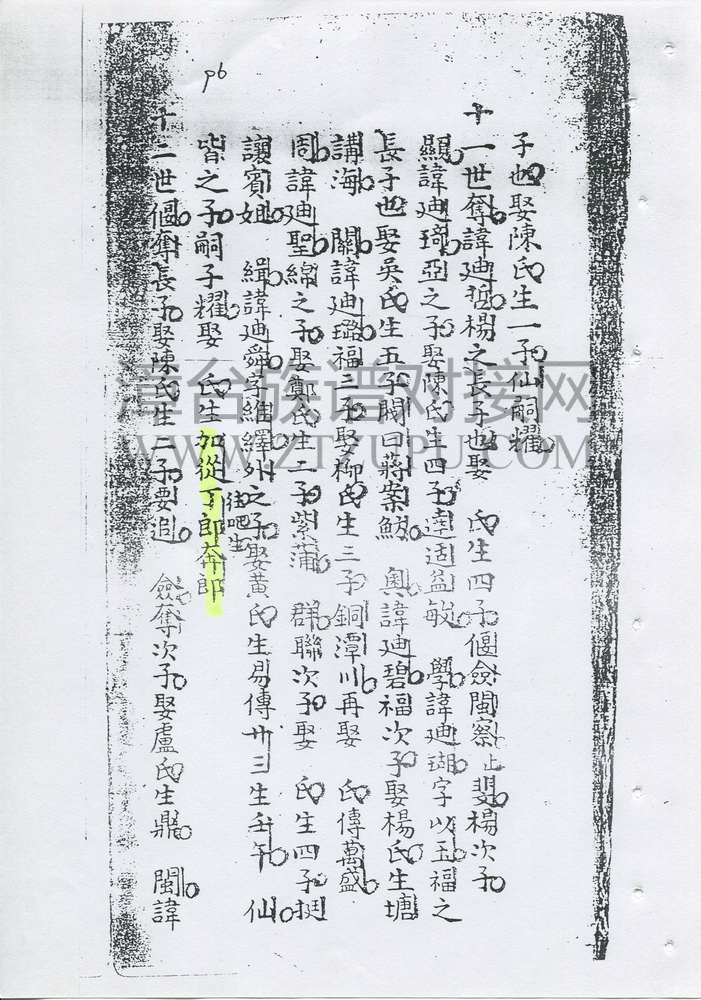 p6
子也娶陳氏生一子仙嗣耀
十一世奪諱廸哲楊之長子也娶 氏生四子偃僉閩察止 斐楊次子
顯諱廸琦亞之子娶陳氏生四子達适益敏 學諱廸瑚字以玉福之
長子也娶吳氏生五子閱曰蔣崇 奥諱廸碧福次子娶楊氏生塘
講海 闕諱廸璐福三子娶柳氏生三子銅潭川再娶 氏傳萬盛
周諱廸聖綿之子娶鄭氏生二子紫蒲 群聯次子娶 氏生四子挺
讓賓姐 緝諱廸舜字維繹外之子娶黃氏生易傳卅三生壬午 仙
往吧生
皆之子嗣子耀娶 氏生加從丁郎奔郎
十二世偃奪長子娶陳氏生二子要 僉奪次子娶盧氏生鼎 閩諱
漳台族谱对接网
WWW.ZTZUPU.COM